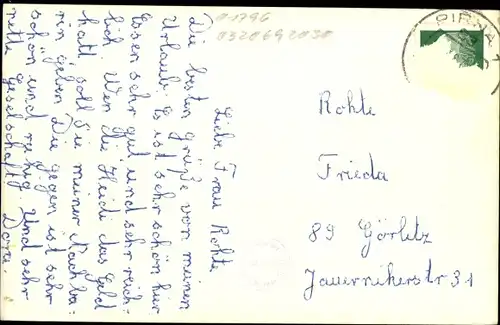 01796
0320692030
PIRNA 1
Liebe Frau Rohte.
Die besten Grüße von meinen
Urlaub. Es ist sehr schön hier.
Essen sehr gut und sehr reich-
lich. Wen die Heidi das Geld
hatt soll Sie meiner Nachba-
rin geben Die Gegen ist sehr
schön und ruhig. Und sehr
nette Geselschaft.
Dora.
Rohte
Frieda
89 Görlitz
Jauernikerstr 31